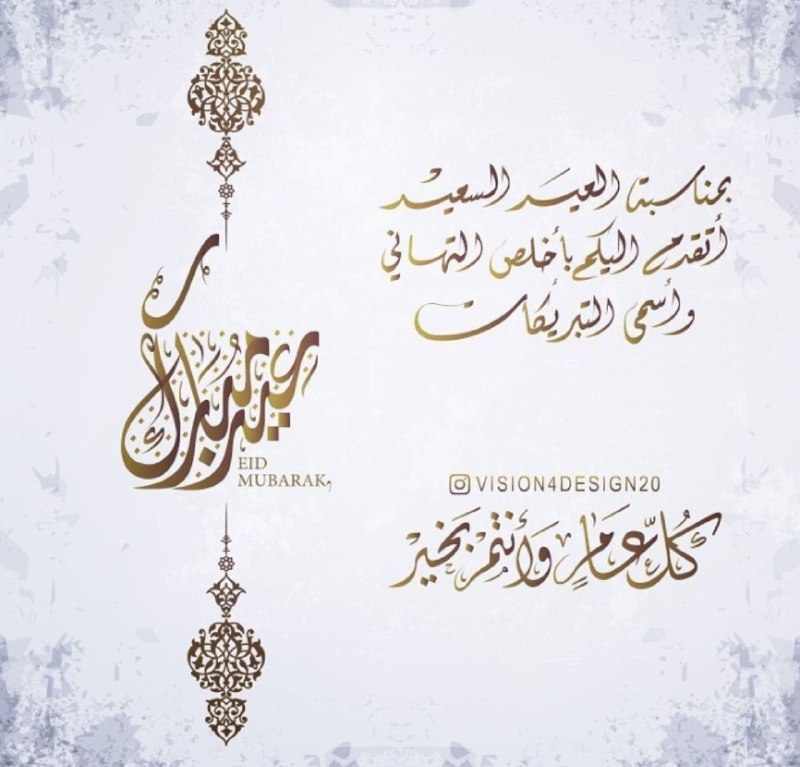 بمناسبة العيد السعيد
أتقدم اليكم بأخلص التهاني
وأسمى التبريكات
عيد مبارك
EID
MUBARAK,
VISION4DESIGN20
كُلّ عَامٍ وَأنتم بَخيْر